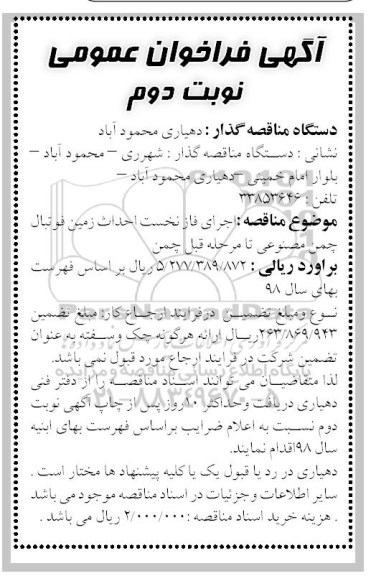 آگهی فراخوان عمومی
نوبت دوم
دستگاه مناقصه گذار : دهیاری محمود آباد
نشانی : دستگاه مناقصه گذار : شهرری – محمود آباد –
بلوار امام خمینی – دهیاری محمود آباد –
تلفن : ۳۳۸۵۳۶۴۶
موضوع مناقصه : اجرای فاز نخست احداث زمین فوتبال
چمن مصنوعی تا مرحله قبل چمن
براورد ریالی : ۵/۲۷۷/۳۸۹/۸۷۲ ریال بر اساس فهرست
بهای سال ۹۸
نوع و مبلغ تضمین در فرایند ارجاع کار : مبلغ تضمین
۲۶۳/۸۶۹/۹۴۳ ریال ارائه هرگونه چک و سفته به عنوان
تضمین شرکت در فرایند ارجاع مورد قبول نمی باشد.
لذا متقاضیان می توانند اسناد مناقصه را از دفتر فنی
دهیاری دریافت وحداکثر ۱۰ روز پس از چاپ آگهی نوبت
دوم نسبت به اعلام ضرایب براساس فهرست بهای ابنیه
سال ۹۸ اقدام نمایند.
دهیاری در رد یا قبول یک یا کلیه پیشنهاد ها مختار است .
سایر اطلاعات وجزئیات در اسناد مناقصه موجود می باشد
. هزینه خرید اسناد مناقصه : ۲/۰۰۰/۰۰۰ ریال می باشد .
پایگاه اطلاع رسانی مناقصه و مزایده
۰۲۱-۸۸۳۴۹۶۷۰-۵